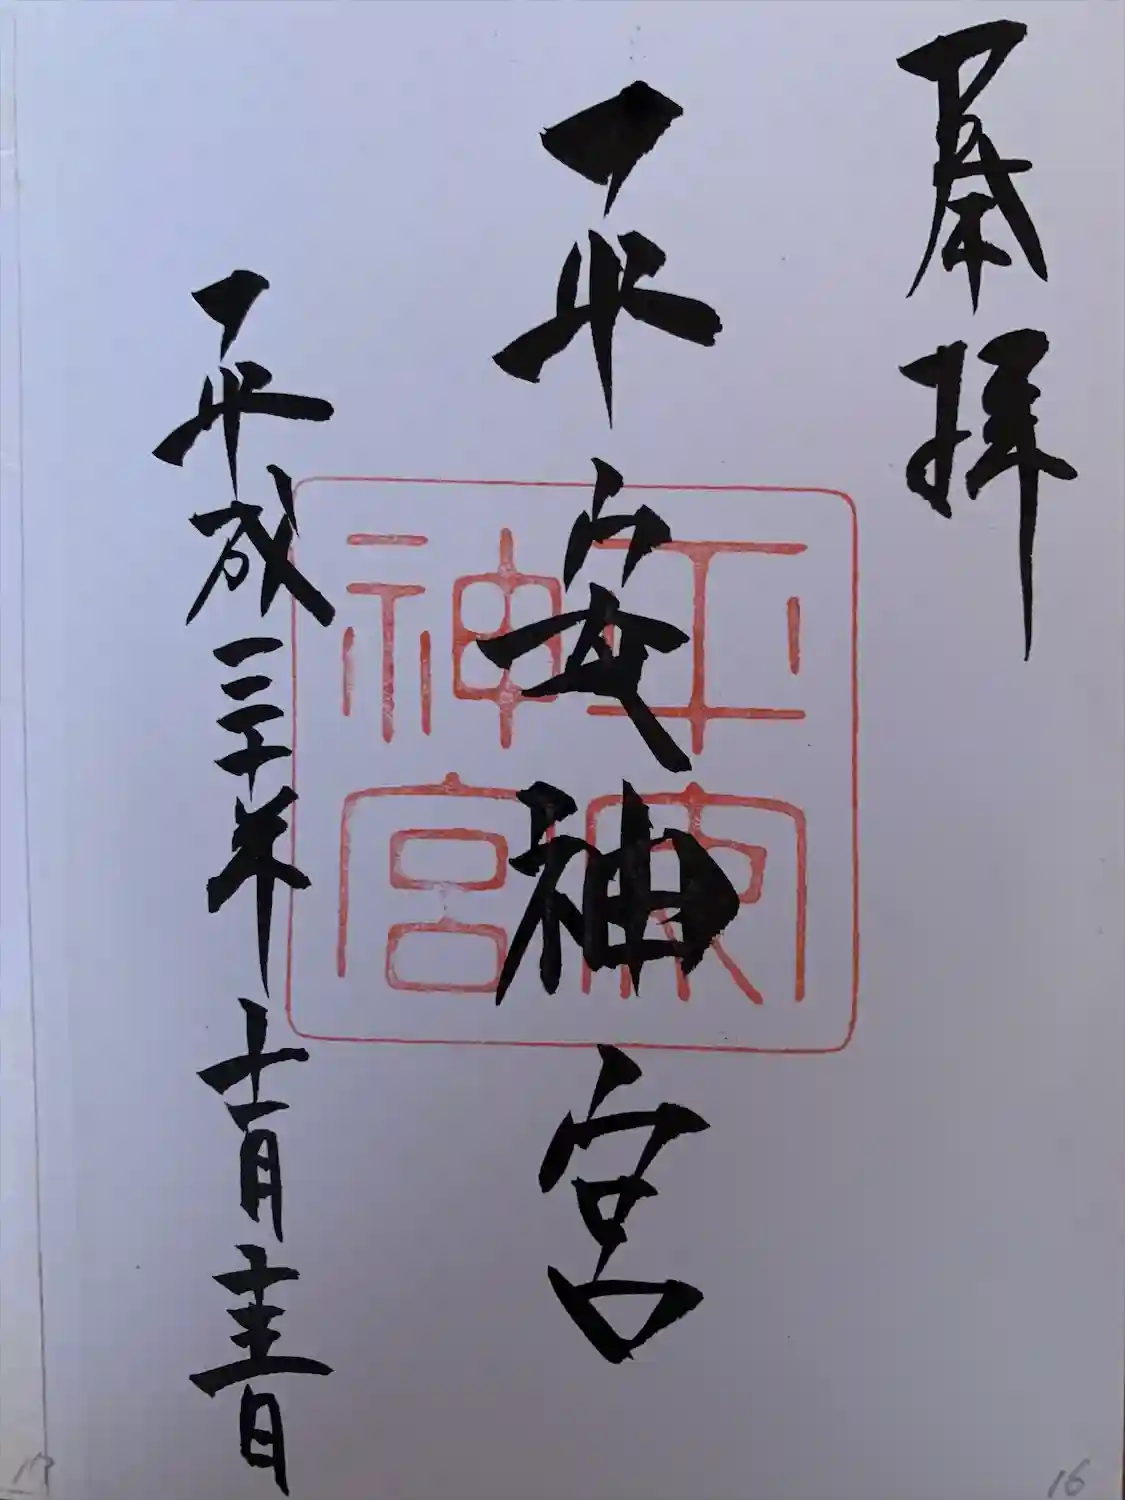 奉拝
平安神宮
平成三十年十一月十三日
平安
神宮
16
17